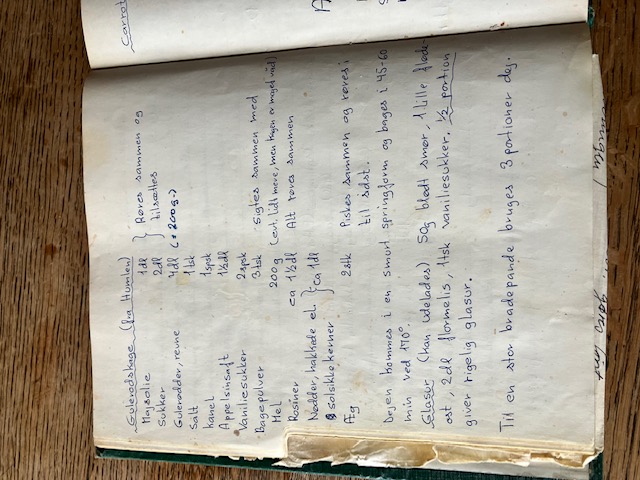 Gulerodskage (fra Humlen)
Majsolie 1dl } Røres sammen og
Sukker 2dl tilsættes
Gulerødder, revne 4dl (= 200g.)
Salt 1tsk
Kanel 1spsk
Appelsinsaft 1½dl
Vaniliesukker 2spsk
Bagepulver 3tsk Sigtes sammen med
Mel 200g (evt. lidt mere, men kagen er meget våd)
Rosiner ca 1½dl Alt røres sammen
Nødder, hakkede el. } ca 1dl
solsikkekerner
Æg 2stk Piskes sammen og røres i
til sidst.
Dejen kommes i en smurt springform og bages i 45-60
min ved 170°.
Glasur (kan udelades) 50g blødt smør, 1 lille fløde-
ost, 2dl flormelis, 1tsk vaniliesukker. ½ portion
giver rigelig glasur.
Til en stor bradepande bruges 3 portioner dej.
Carrot